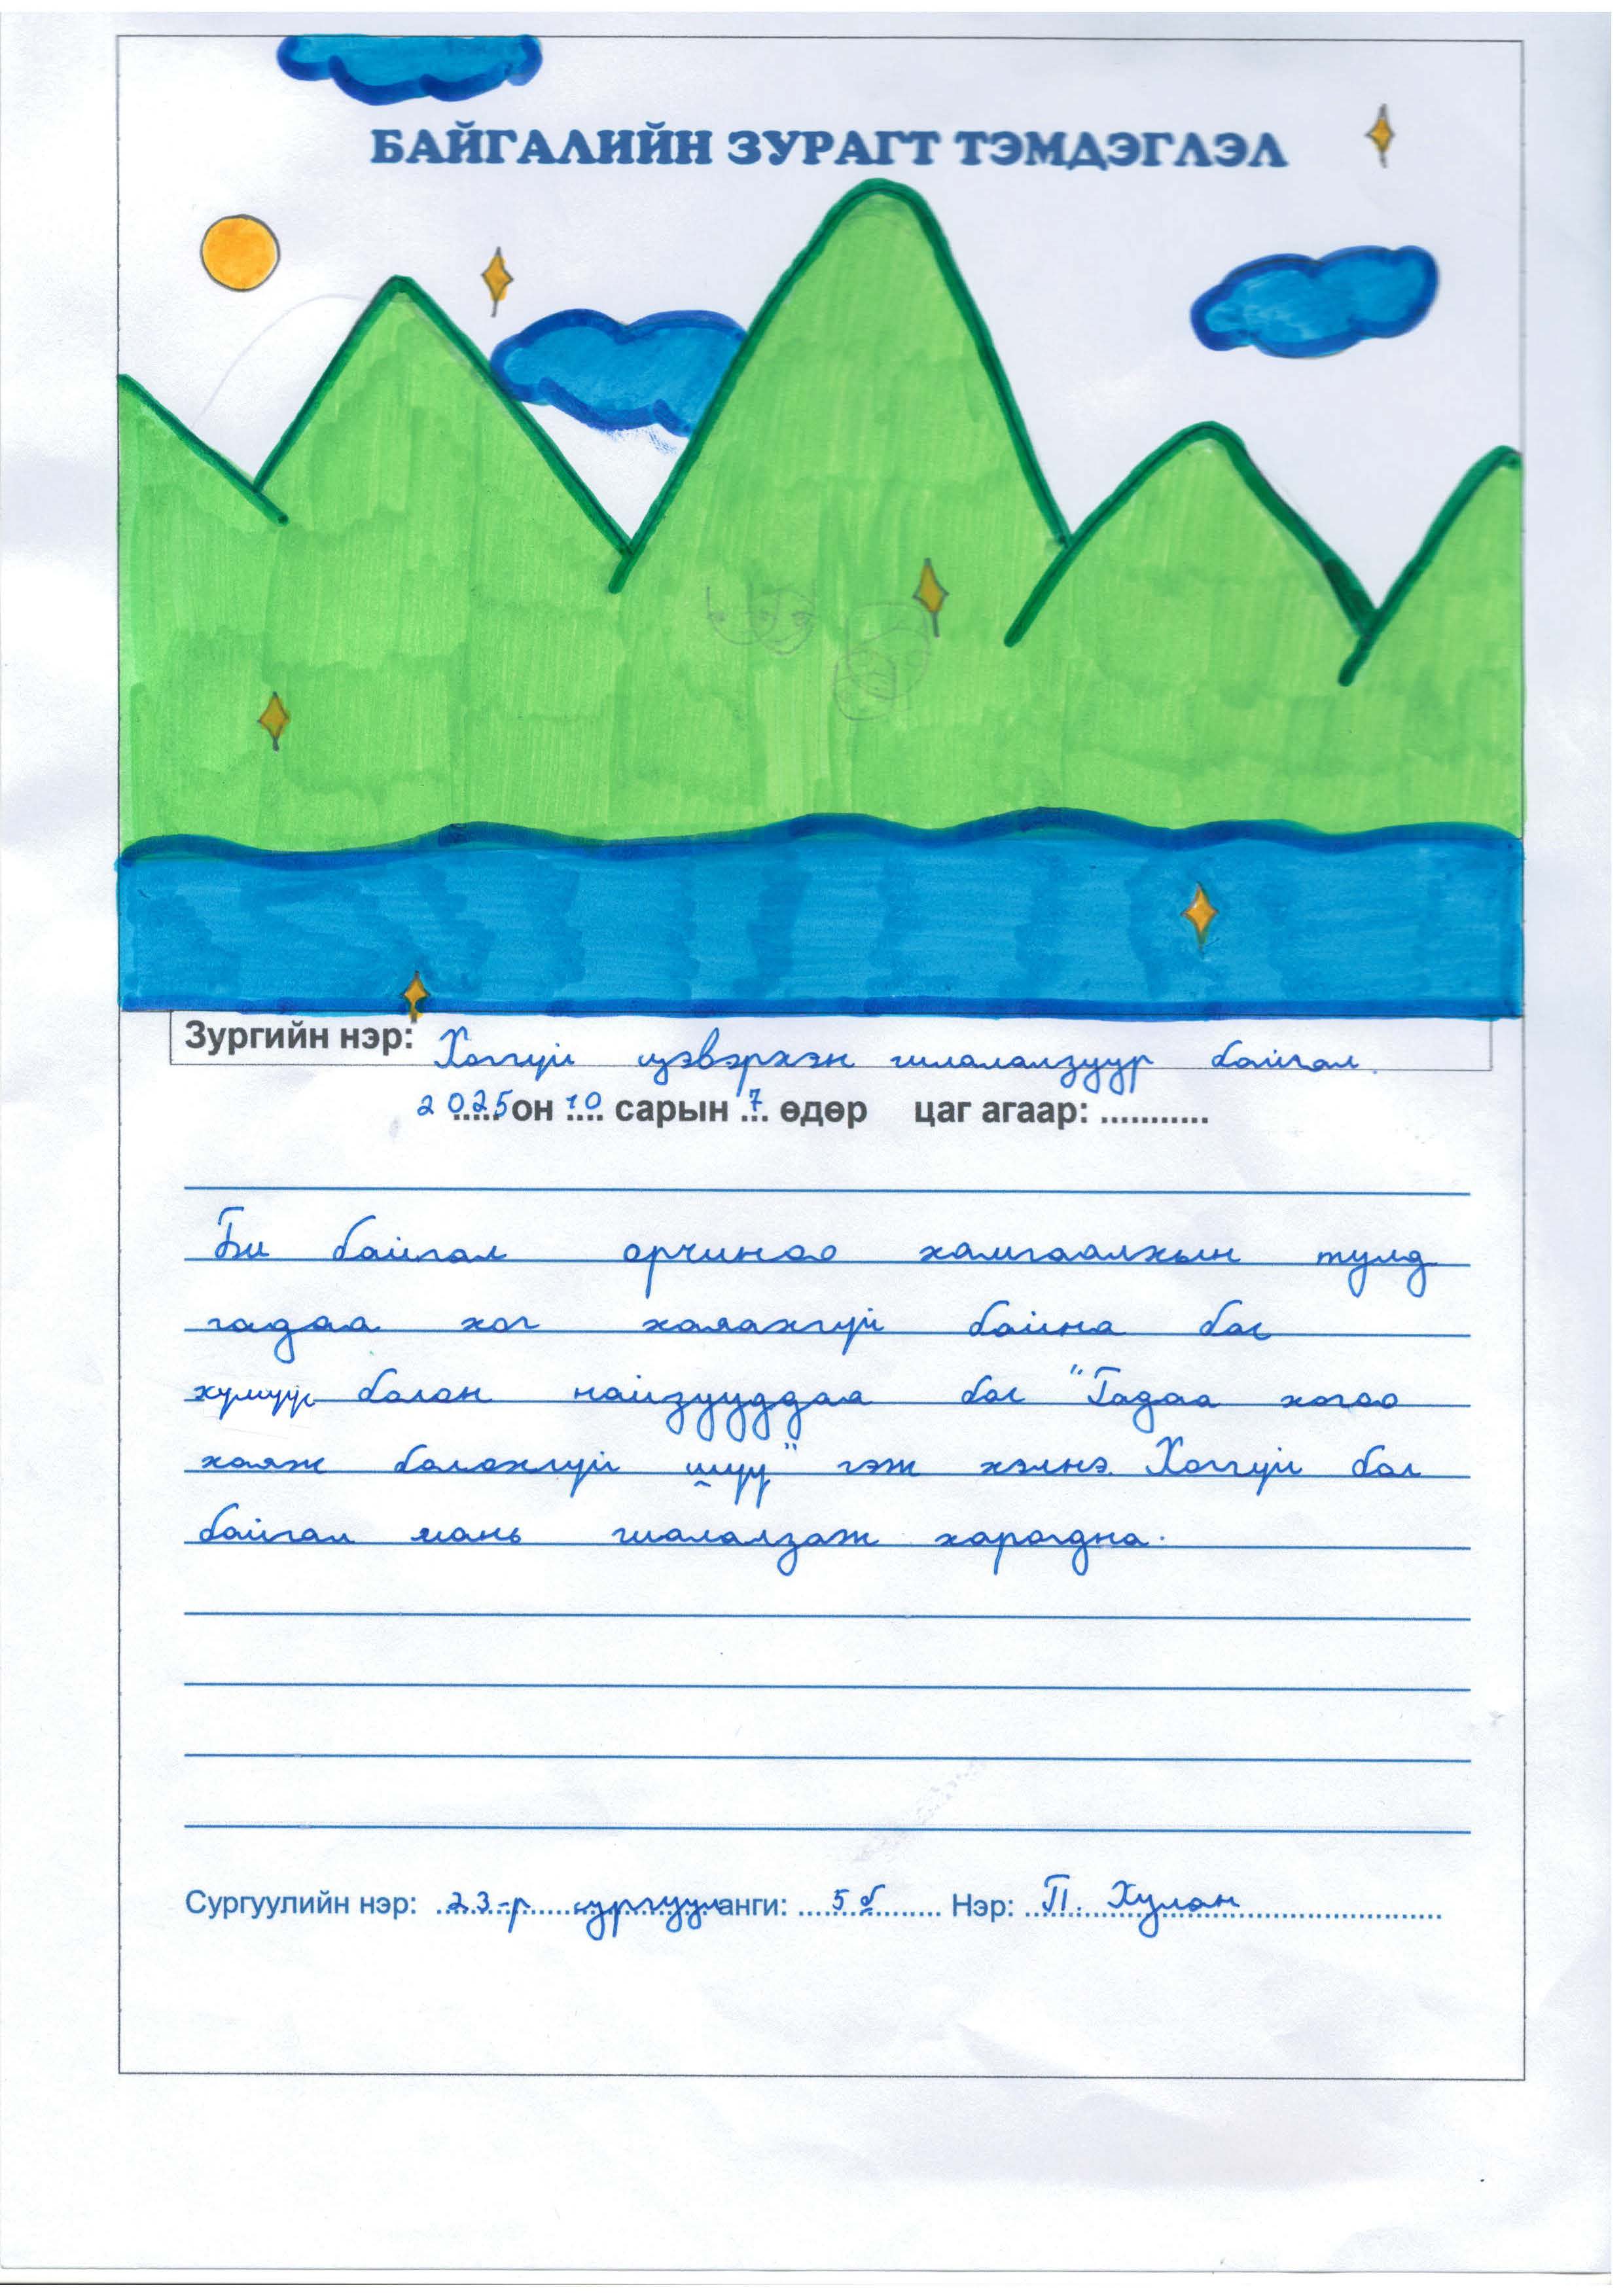 БАЙГАЛИЙН ЗУРАГТ ТЭМДЭГЛЭЛ
Зургийн нэр: Хоггүй цэвэрхэн гялалзуур байгал.
2025 он 10 сарын 7 өдөр цаг агаар: ...........
Би байгал орчиноо хамгаалхын тулд
гадаа хог хаяахгүй байна бас
хүмүүс болон найзууддаа бас "Гадаа хогоо
хаяж болохгүй шүү" гэж хэлнэ. Хоггүй бол
байгал мань гялалзаж харагдна.
Сургуулийн нэр: 23-р сургууль анги: 5б Нэр: П. Хулан